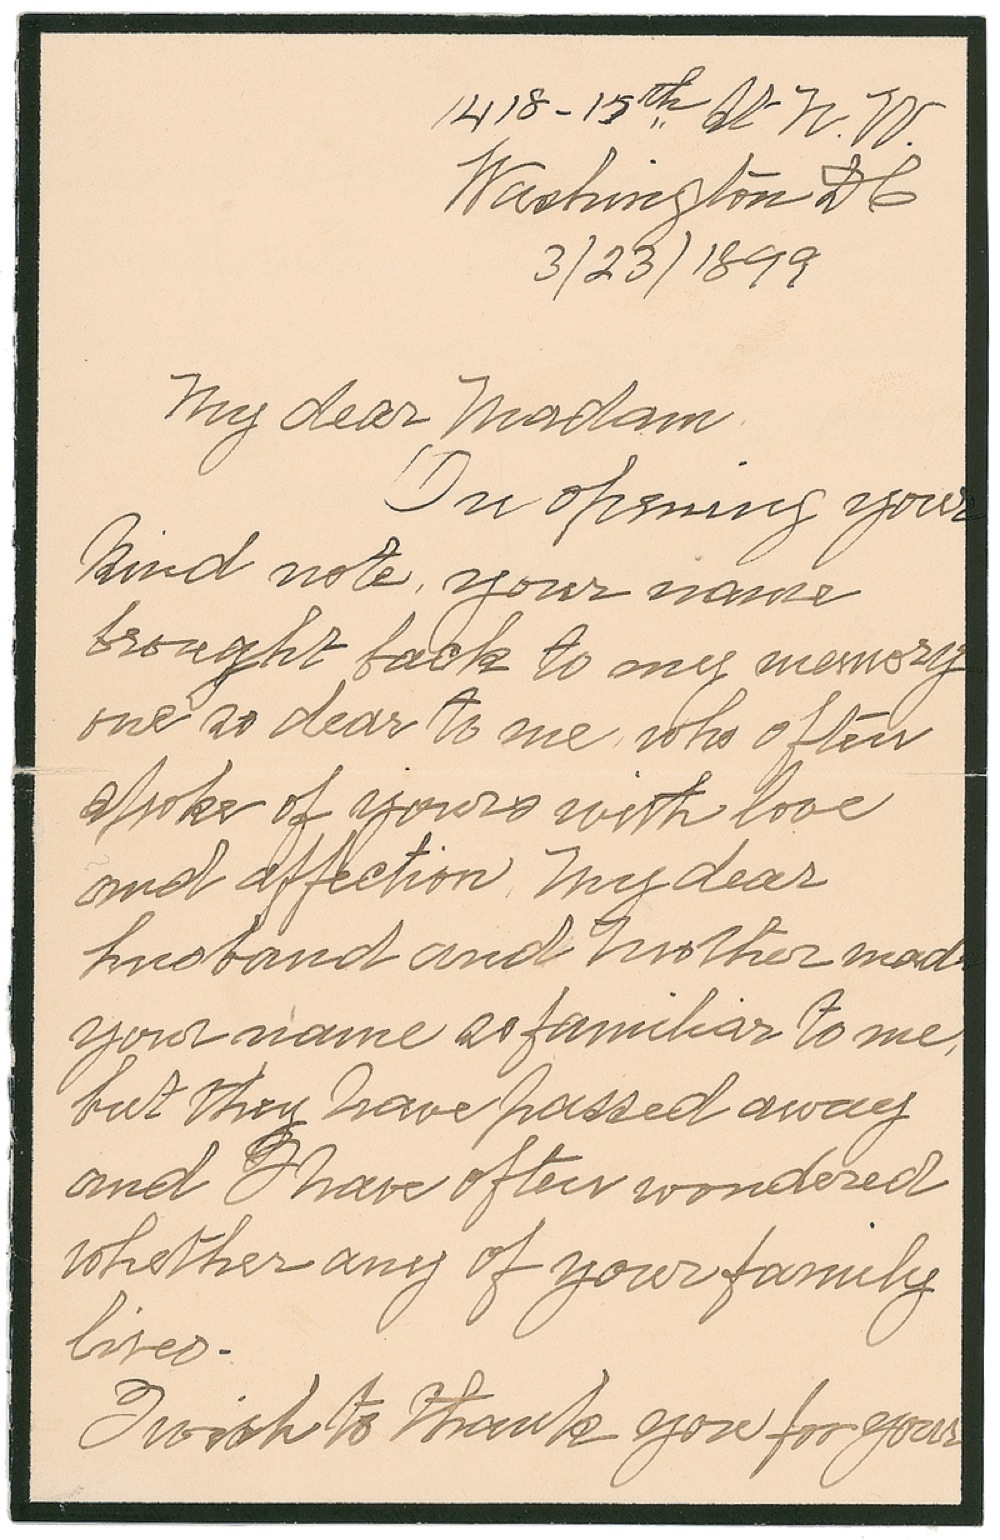 1418-15th St N. W.
Washington DC
3/23/1899
My dear Madam
On opening your
kind note, your name
brought back to my memory
one so dear to me, who often
spoke of yours with love
and affection. My dear
husband and Mother made
your name so familiar to me,
but they have passed away
and I have often wondered
whether any of your family
lives.
I wish to thank you for your